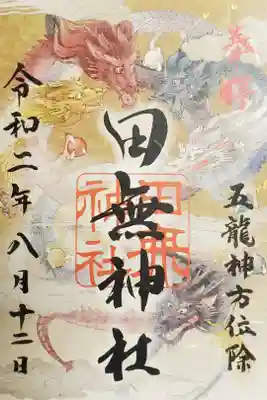 奉拝
五龍神方位除
田無神社
田無神社
令和二年八月十二日